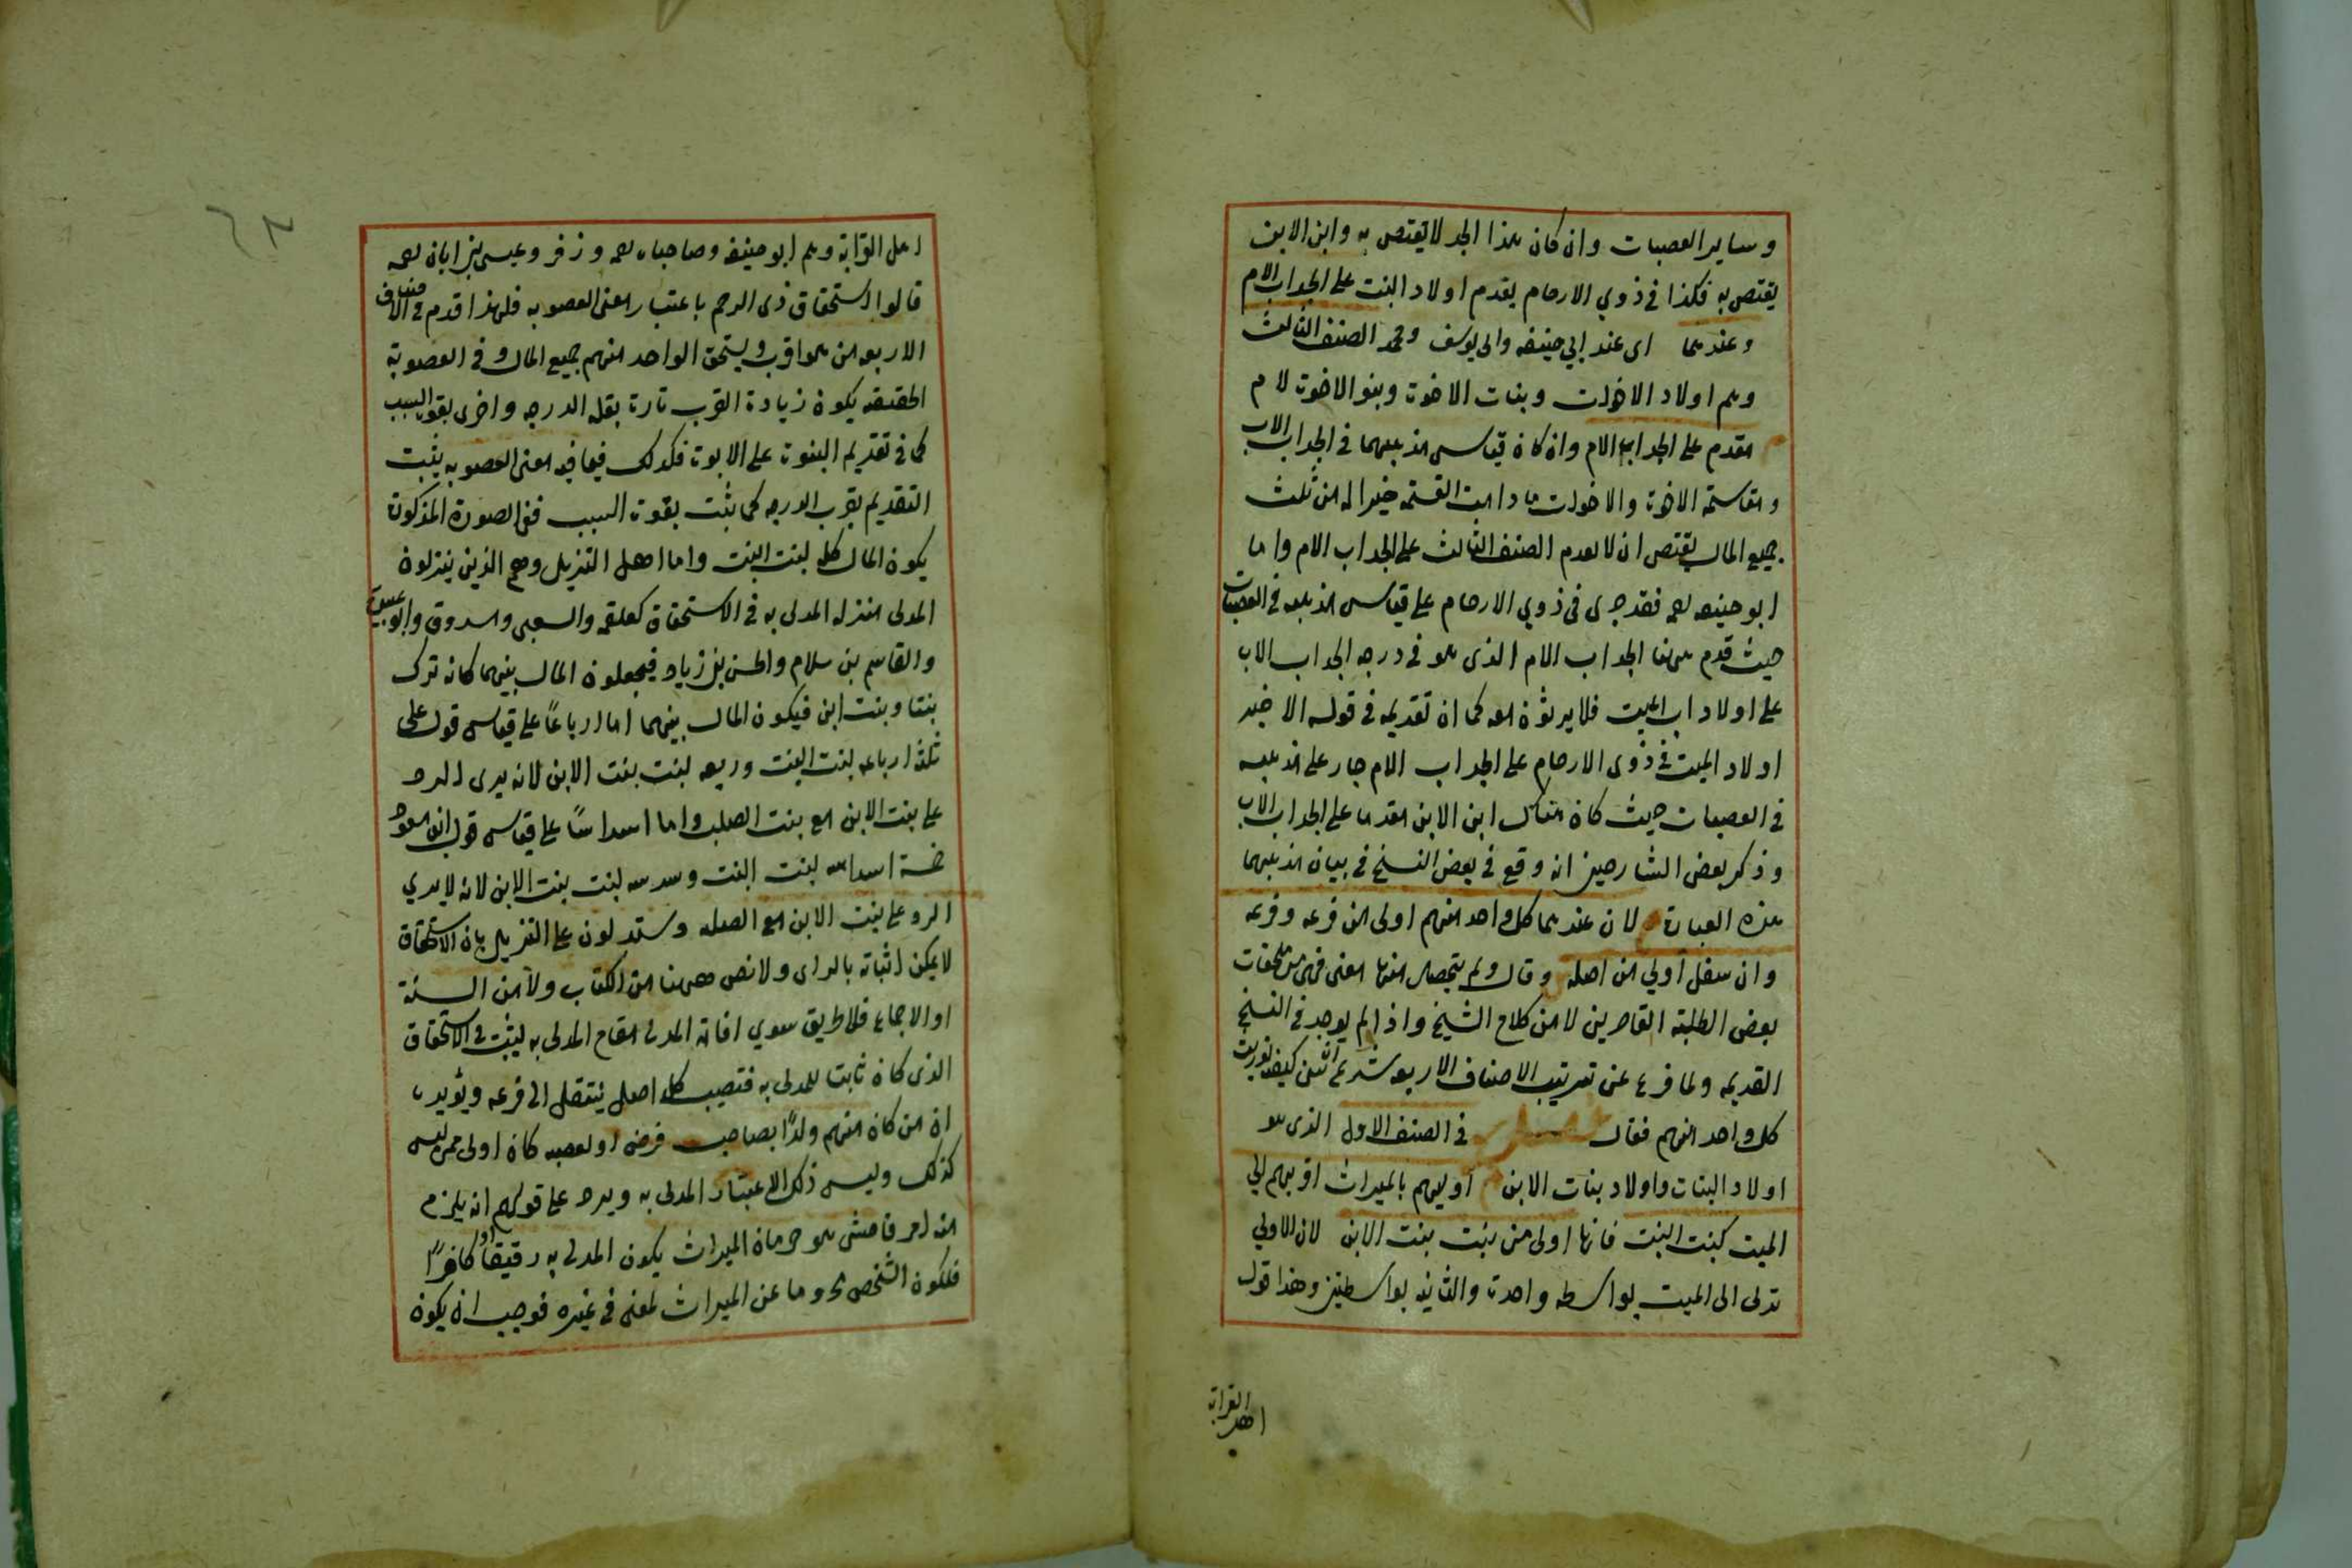 وساير العصبات وان كان هذا الجد لا يقتص به وابن الابن
يقتص به فكذا في ذوي الارحام يقدم اولاد البنت على الجد اب الام
وعندهما اى عند ابي حنيفه وابى يوسف ومحمد الصنف الثالث
وهم اولاد الاخوات وبنات الاخوة وبنو الاخوة لام
مقدم على الجد اب الام وان كان قياس مذهبهما في الجد اب الاب
ومقاسمة الاخوة والاخوات ما دامت القسمة خيرا له من ثلث
جميع المال يقتص ان لا يقدم الصنف الثالث على الجد اب الام واما
ابو حنيفه رحمه فقد جرى فى ذوي الارحام على قياس مذهبه في العصبات
حيث قدم ههنا الجد اب الام الذى هو في درجه الجد اب الاب
على اولاد اب الميت فلا يرثون معه كما ان تقديمه في قوله الاخير
اولاد الميت في ذوى الارحام على الجد اب الام جار على مذهبه
في العصبات حيث كان هناك ابن الابن مقدما على الجد اب الاب
وذكر بعض الشارحين انه وقع في بعض النسخ في بيان مذهبهما
هذه العبارة لان عندهما كل واحد منهم اولى من فرعه وفرعه
وان سفل اولي من اصله وقال ولم يتحصل منها معنى فهى من ملحقات
بعض الطلبة القاصرين لا من كلام الشيخ واذا لم يوجد في النسخ
القديمه ولما فرغ عن ترتيب الاصناف الاربعه شرع في كيفيه توريث
كل واحد منهم فقال في الصنف الاول الذى هو
اولاد البنات واولاد بنات الابن اوليهم بالميراث اقربهم الي
الميت كبنت البنت فانها اولى من بنت بنت الابن لان الاولي
تدلى الى الميت بواسطه واحدة والثانيه بواسطتين وهذا قول
اهل القرابة
اهل القرابة وهم ابو حنيفه وصاحباه رحمه وزفر وعيسى بن ابان رحمه
قالوا استحقاق ذى الرحم باعتبار معنى العصوبه فلهذا قدم في الاصناف
الاربعه من هو اقرب ويستحق الواحد منهم جميع المال وفى العصوبة
الحقيقه يكون زيادة القرب تارة بقلة الدرجه واخرى بقوة السبب
كما في تقديم البنوة على الابوة فكذلك فيما فيه معنى العصوبه يثبت
التقديم بقرب الدرجه كما يثبت بقوة السبب ففى الصورة المذكورة
يكون المال كله لبنت البنت واما اهل التنزيل وهم الذين ينزلون
المدلى منزله المدلى به في الاستحقاق كعلقمه والشعبى ومسروق وابو عبيدة
والقاسم بن سلام والحسن بن زياد فيجعلون المال بينهما كانه ترك
بنتا وبنت ابن فيكون المال بينهما اما ارباعًا على قياس قول على
ثلثة ارباعه لبنت البنت وربعه لبنت بنت الابن لانه يرى الرد
على بنت الابن مع بنت الصلب واما اسداسًا على قياس قول ابن مسعود
خمسة اسداسه لبنت البنت وسدسه لبنت بنت الابن لانه لا يري
الرد على بنت الابن مع الصلبه ويستدلون على التنزيل بان الاستحقاق
لا يمكن اثباته بالراى ولا نص ههنا من الكتاب ولا من السنة
او الاجماع فلا طريق سوي اقامة المدلى مقام المدلى به ليثبت له الاستحقاق
الذى كان ثابتا للمدلى به فنصيب كل اصل ينتقل الى فرعه ويؤيده
ان من كان منهم ولدًا بصاحب فرض او لعصبه كان اولى ممن ليس
كذلك وليس ذلك الا عتبار المدلى به ويرد على قولهم انه يلزم
منه امر فاحش هو حرمان الميراث بكون المدلى به رقيقا او كافرًا
فلكون الشخص محروما عن الميراث لمعنى في غيره فوجب ان يكون